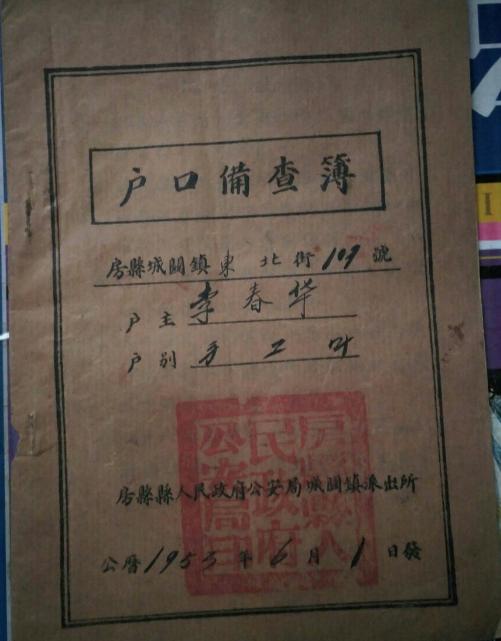 户口備查簿
房縣城關鎮東北街109號
户主 李春华
户别 手工叶
房縣縣人民政府公安局城關鎮派出所
公曆1955年6月1日發
房縣人民政府公安局印